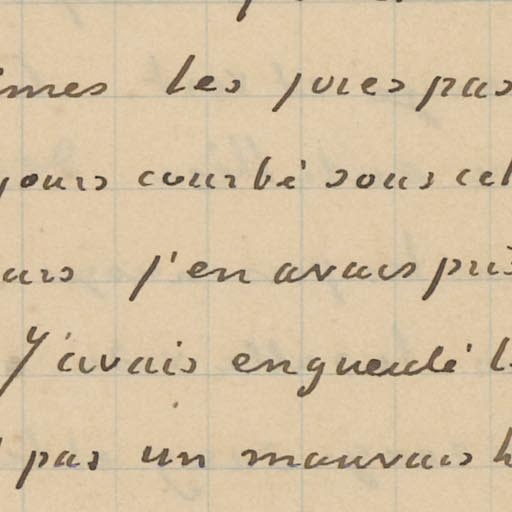 imes les jures pas
jours courbé sous cet
urs j'en avais pris
J'avais engueulé l
pas un mauvais h